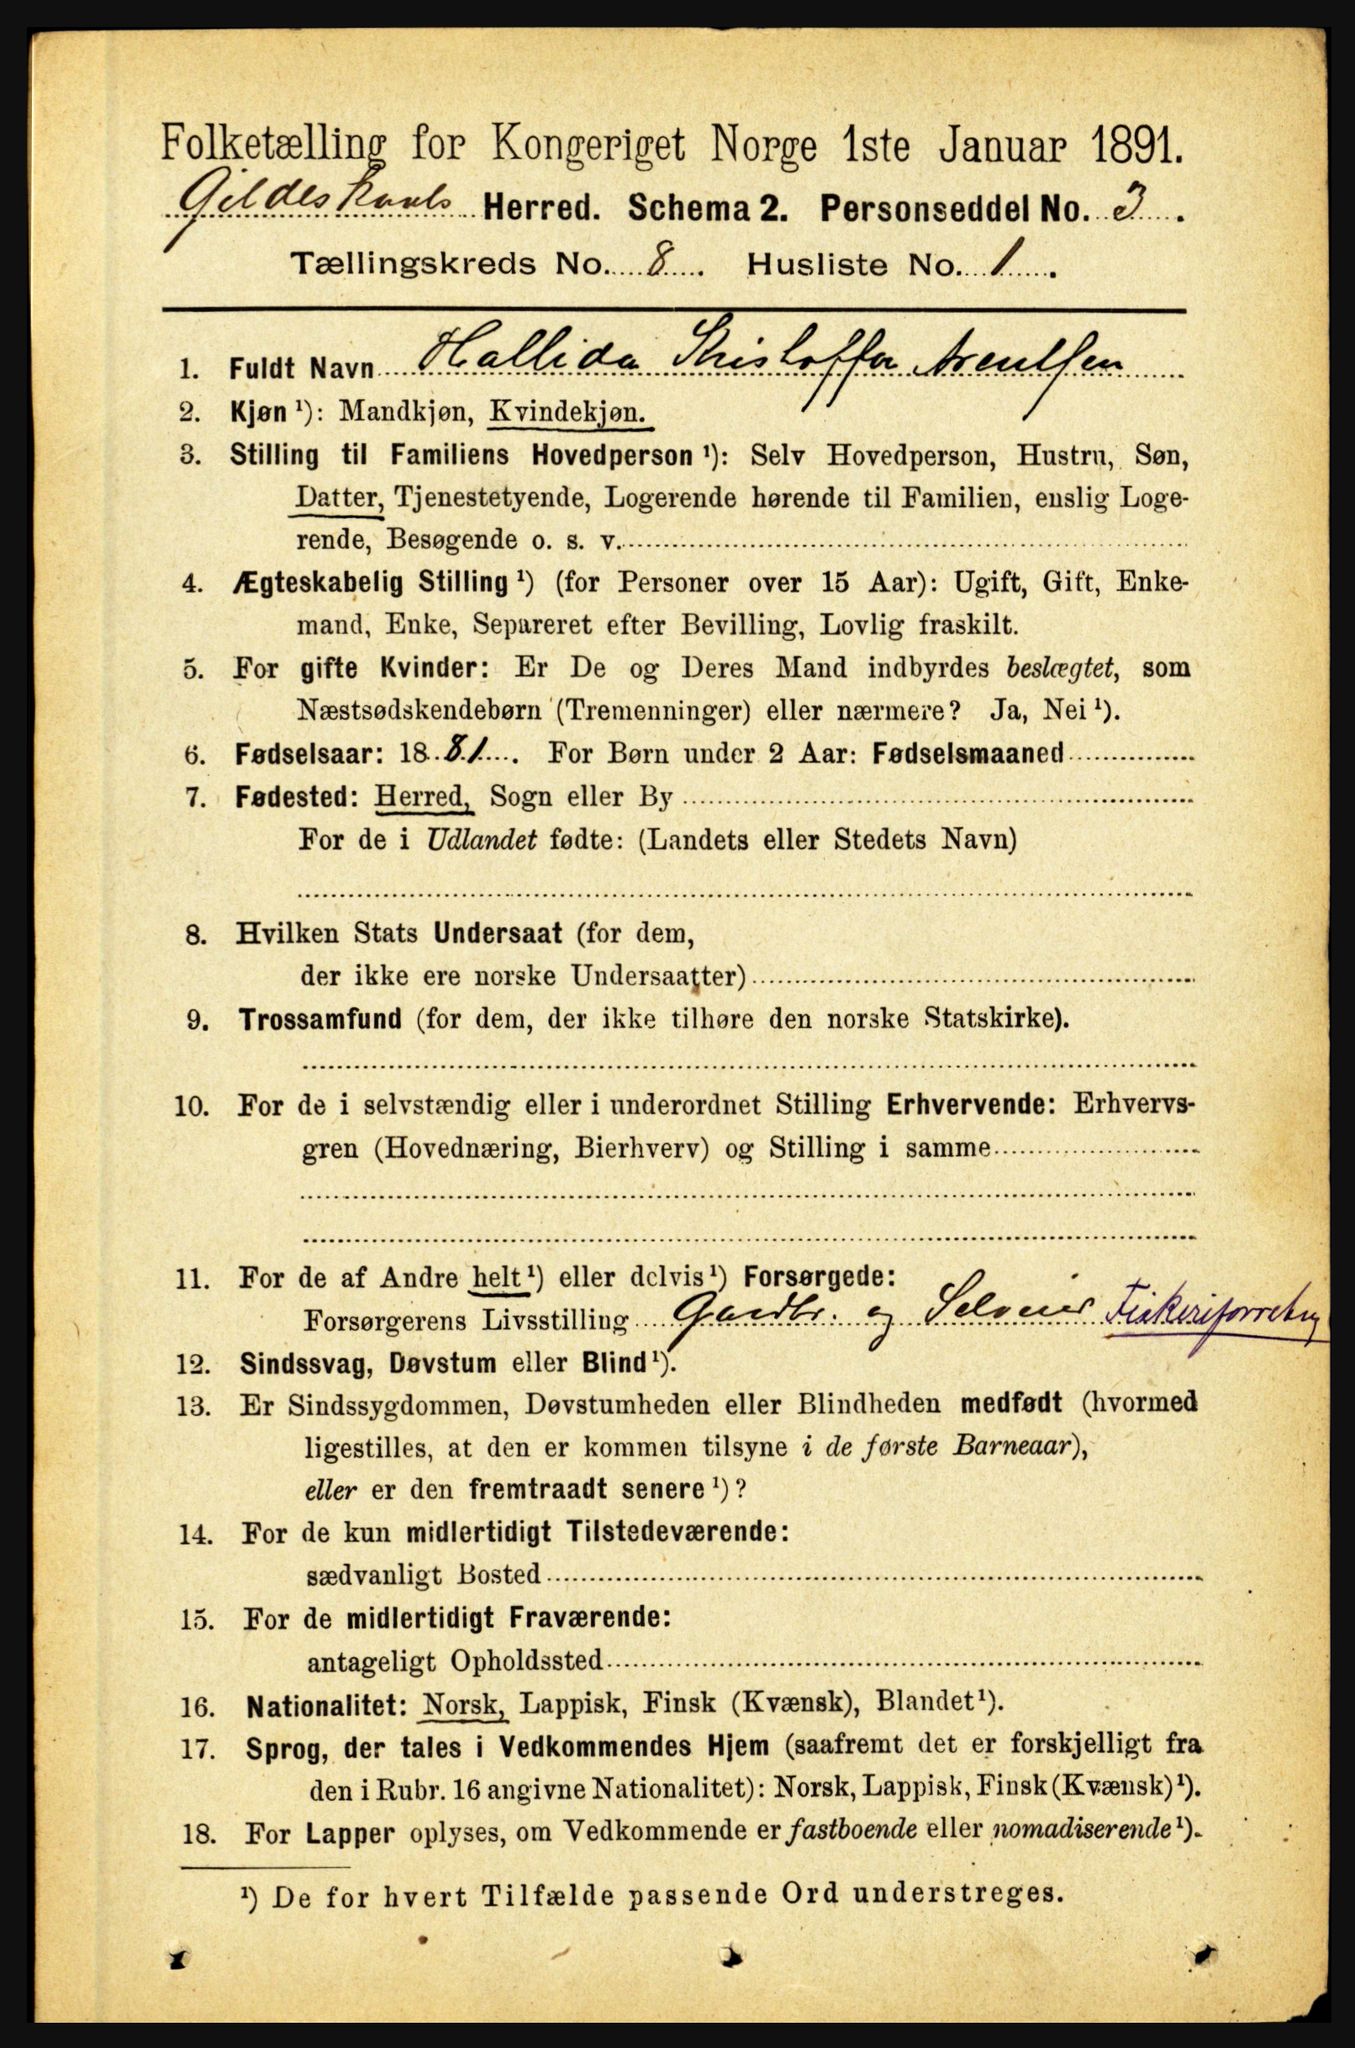 Folketælling for Kongeriget Norge 1ste Januar 1891.
Gildeskaals Herred. Schema 2. Personseddel No. 3.
Tællingskreds No. 8. Husliste No. 1.
1. Fuldt Navn Hallida Kristoffa Arentsen
2. Kjøn ¹): Mandkjøn, Kvindekjøn.
3. Stilling til Familiens Hovedperson ¹): Selv Hovedperson, Hustru, Søn,
Datter, Tjenestetyende, Logerende hørende til Familien, enslig Loge-
rende, Besøgende o. s. v.
4. Ægteskabelig Stilling ¹) (for Personer over 15 Aar): Ugift, Gift, Enke-
mand, Enke, Separeret efter Bevilling, Lovlig fraskilt.
5. For gifte Kvinder: Er De og Deres Mand indbyrdes beslægtet, som
Næstsødskendebørn (Tremenninger) eller nærmere? Ja, Nei ¹).
6. Fødselsaar: 1881. For Børn under 2 Aar: Fødselsmaaned
7. Fødested: Herred, Sogn eller By
For de i Udlandet fødte: (Landets eller Stedets Navn)
8. Hvilken Stats Undersaat (for dem,
der ikke ere norske Undersaatter)
9. Trossamfund (for dem, der ikke tilhøre den norske Statskirke).
10. For de i selvstændig eller i underordnet Stilling Erhvervende: Erhvervs-
gren (Hovednæring, Bierhverv) og Stilling i samme
11. For de af Andre helt ¹) eller delvis ¹) Forsørgede:
Forsørgerens Livsstilling Gaardbr. og Selveier Fiskeriforretng
12. Sindssvag, Døvstum eller Blind ¹).
13. Er Sindssygdommen, Døvstumheden eller Blindheden medfødt (hvormed
ligestilles, at den er kommen tilsyne i de første Barneaar),
eller er den fremtraadt senere ¹)?
14. For de kun midlertidigt Tilstedeværende:
sædvanligt Bosted
15. For de midlertidigt Fraværende:
antageligt Opholdssted
16. Nationalitet: Norsk, Lappisk, Finsk (Kvænsk), Blandet ¹).
17. Sprog, der tales i Vedkommendes Hjem (saafremt det er forskjelligt fra
den i Rubr. 16 angivne Nationalitet): Norsk, Lappisk, Finsk (Kvænsk) ¹).
18. For Lapper oplyses, om Vedkommende er fastboende eller nomadiserende ¹).
¹) De for hvert Tilfælde passende Ord understreges.